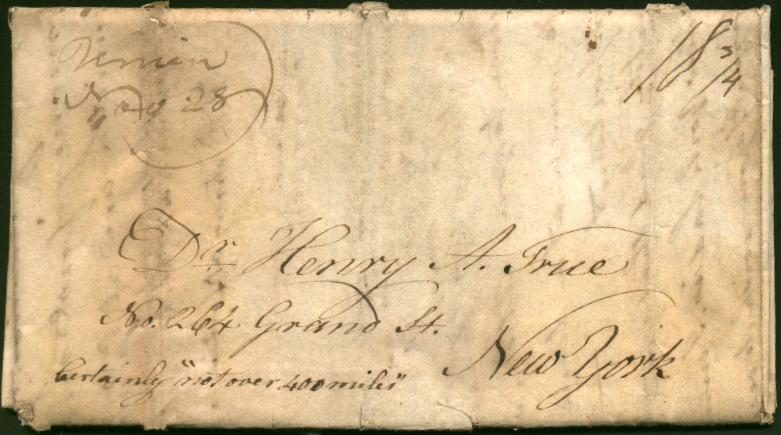 Union
Nov 28
18 3/4
Dr. Henry A. True
No. 264 Grand St.
New York
Certainly "not over 400 miles"